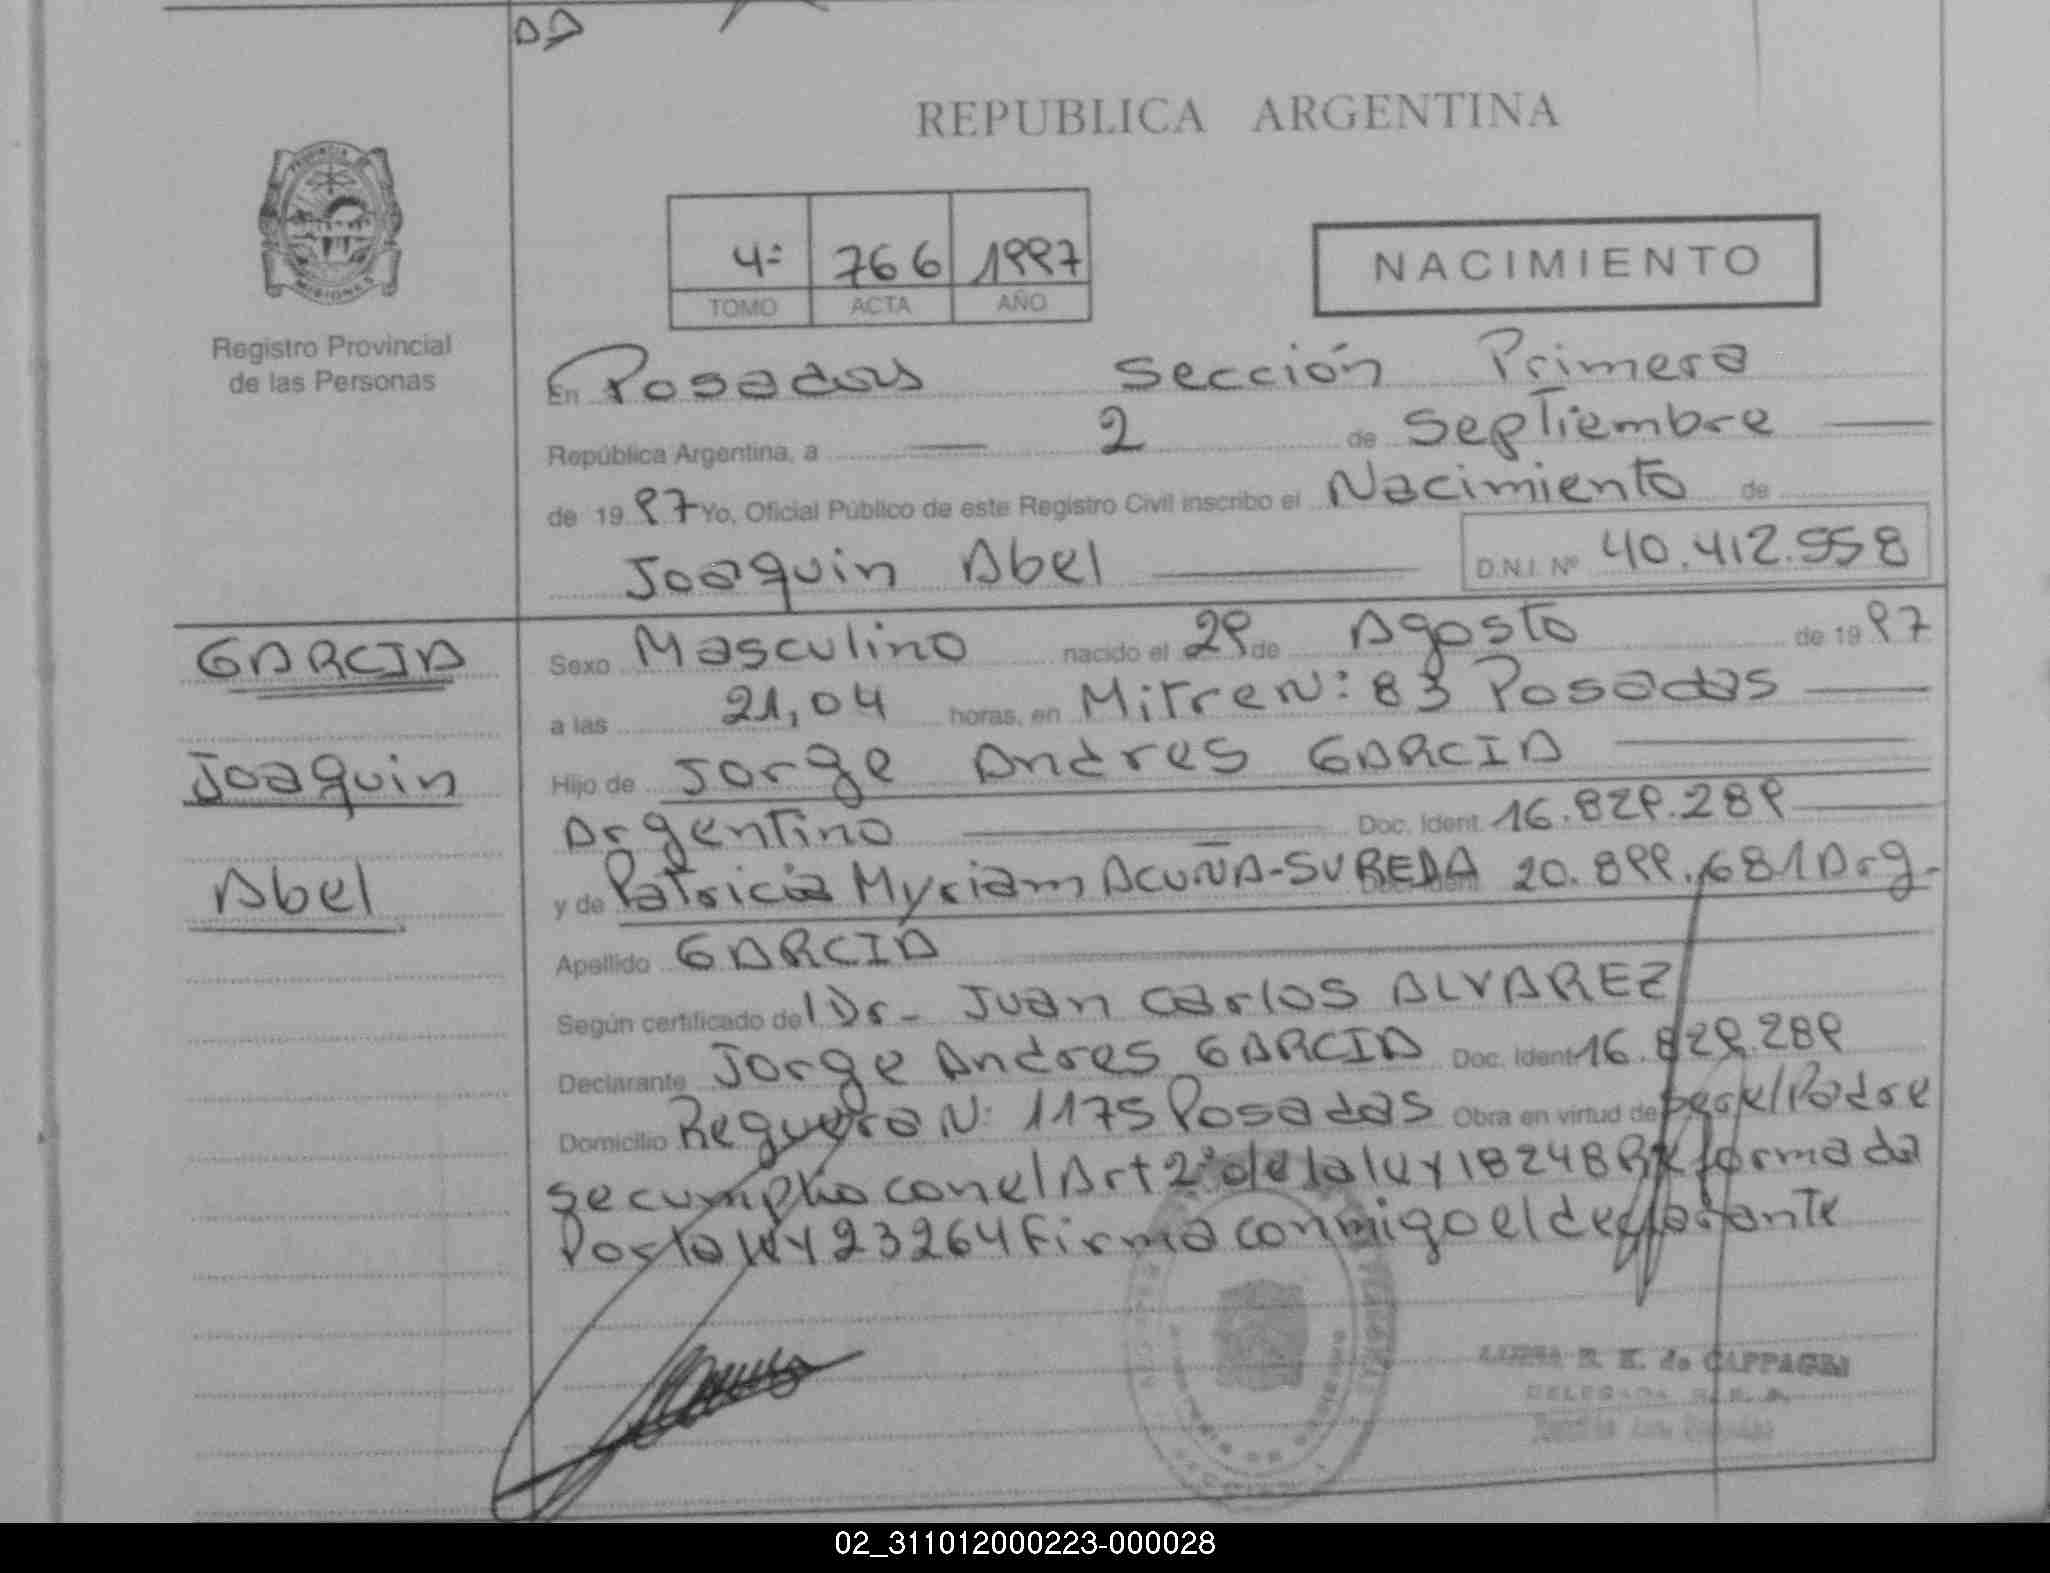 REPUBLICA ARGENTINA
PROVINCIA DE MISIONES
Registro Provincial
de las Personas
4º 766 1997
TOMO ACTA AÑO
NACIMIENTO
En Posadas Sección Primera
República Argentina, a 2 de Septiembre
de 1997 Yo, Oficial Público de este Registro Civil inscribo el Nacimiento de
Joaquin Abel D.N.I. Nº 40.412.558
GARCIA
Joaquin
Abel
Sexo Masculino nacido el 29 de Agosto de 1997
a las 21,04 horas, en Mitre N: 83 Posadas
Hijo de Jorge Andres GARCIA
Argentino Doc. Ident. 16.829.289
y de Patricia Myriam ACUÑA-SUREDA 20.899.681 Arg.
Apellido GARCIA
Según certificado del Dr- Juan Carlos ALVAREZ
Declarante Jorge Andres GARCIA Doc. Ident 16.829.289
Domicilio Reguera N: 1175 Posadas Obra en virtud de ser el Padre
se cumplio con el Art 2º de la ley 18248 Reformada
Por la ley 23264 Firma conmigo el declarante
R. K. de CAPPAGLI
DELEGADA
02_311012000223-000028